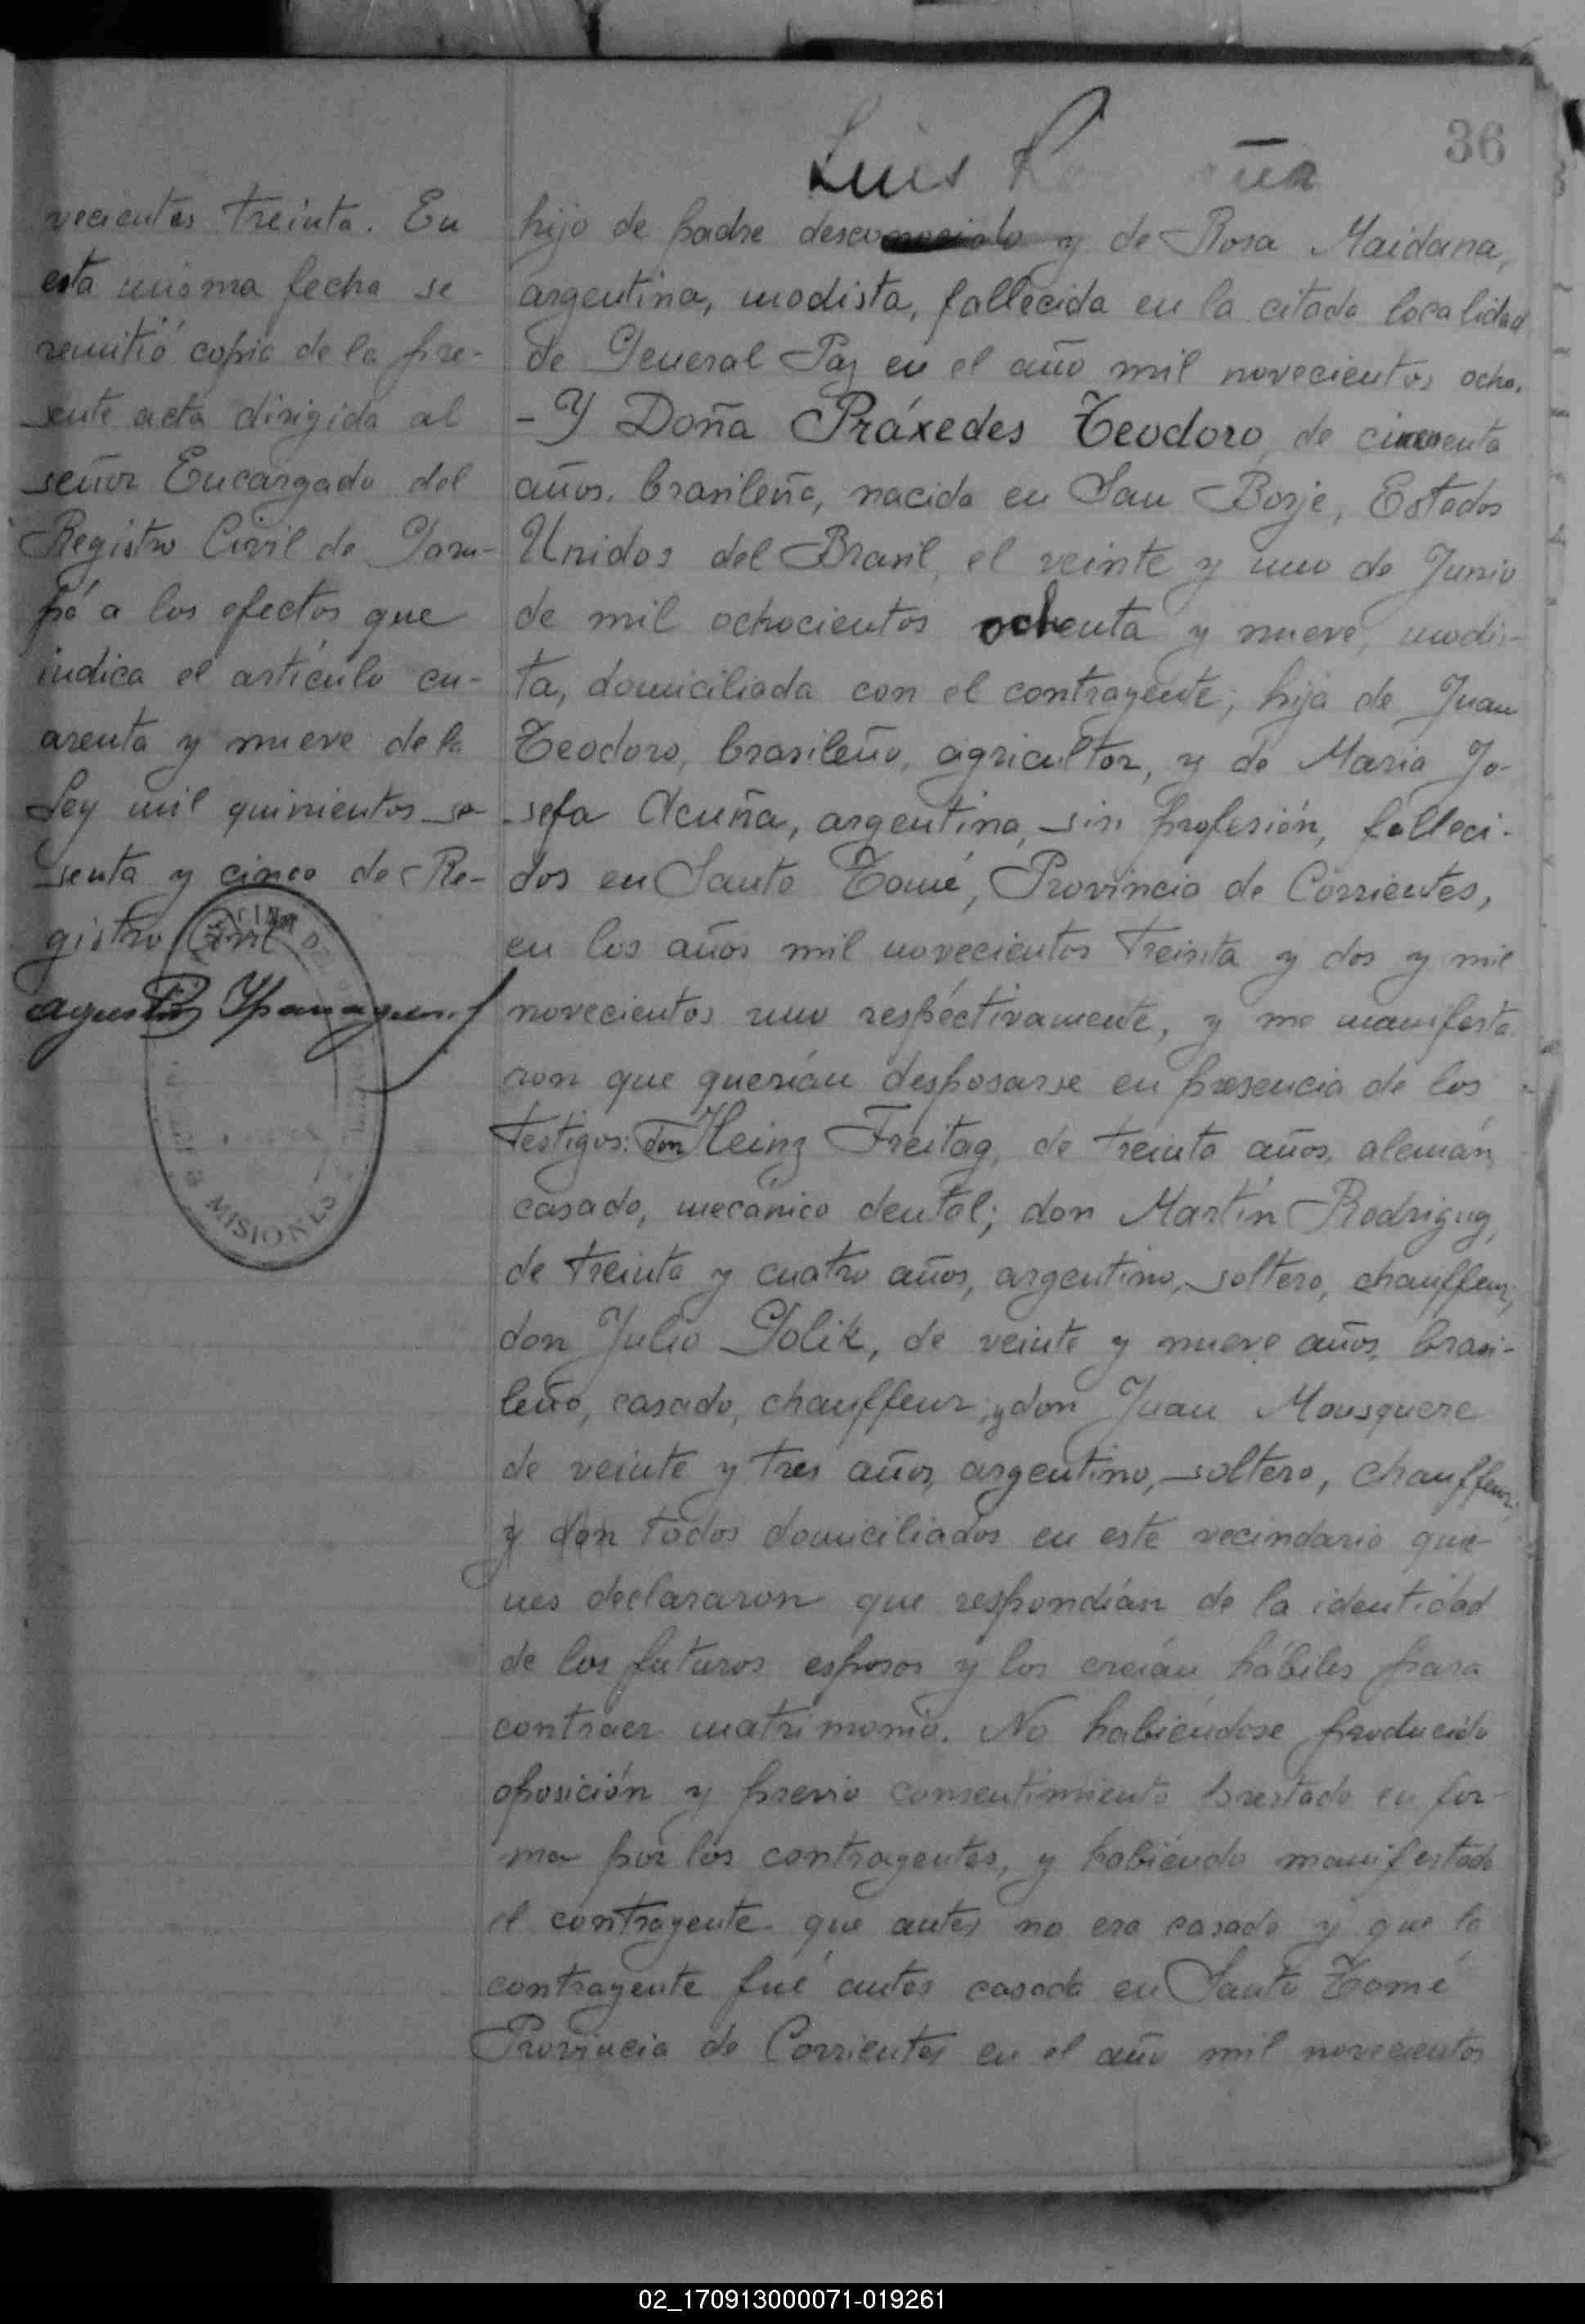 36
Luis
vecientos treinta. En
esta misma fecha se
remitió copia de la pre-
sente acta dirigida al
señor Encargado del
Registro Civil de Garu-
pá a los efectos que
indica el artículo cu-
arenta y nueve de la
Ley mil quinientos se-
senta y cinco de Re-
gistro Civil
MISIONES
hijo de padre desconocido y de Rosa Maidana,
argentina, modista, fallecida en la citada localidad
de General Paz en el año mil novecientos ocho.
- Y Doña Práxedes Teodoro, de cincuenta
años, brasileña, nacida en San Borje, Estados
Unidos del Brasil, el veinte y uno de Junio
de mil ochocientos ochenta y nueve, modis-
ta, domiciliada con el contrayente; hija de Juan
Teodoro, brasileño, agricultor, y de María Jo-
sefa Acuña, argentina, sin profesión, falleci-
dos en Santo Tomé, Provincia de Corrientes,
en los años mil novecientos treinta y dos y mil
novecientos uno respectivamente, y me manifesta
ron que querían desposarse en presencia de los
testigos: don Heinz Freitag, de treinta años, alemán,
casado, mecánico dental; don Martín Rodriguez,
de treinta y cuatro años, argentino, soltero, chauffeur;
don Julio Golik, de veinte y nueve años, brasi-
leño, casado, chauffeur; y don Juan Mousquere
de veinte y tres años, argentino, soltero, chauffeur;
y don todos domiciliados en este vecindario quie-
nes declararon que respondían de la identidad
de los futuros esposos y los creían hábiles para
contraer matrimonio. No habiéndose producido
oposición y previo consentimiento prestado en for-
ma por los contrayentes, y habiendo manifestado
el contrayente que antes no era casado y que la
contrayente fué antes casada en Santo Tomé
Provincia de Corrientes en el año mil novecientos
02_170913000071-019261